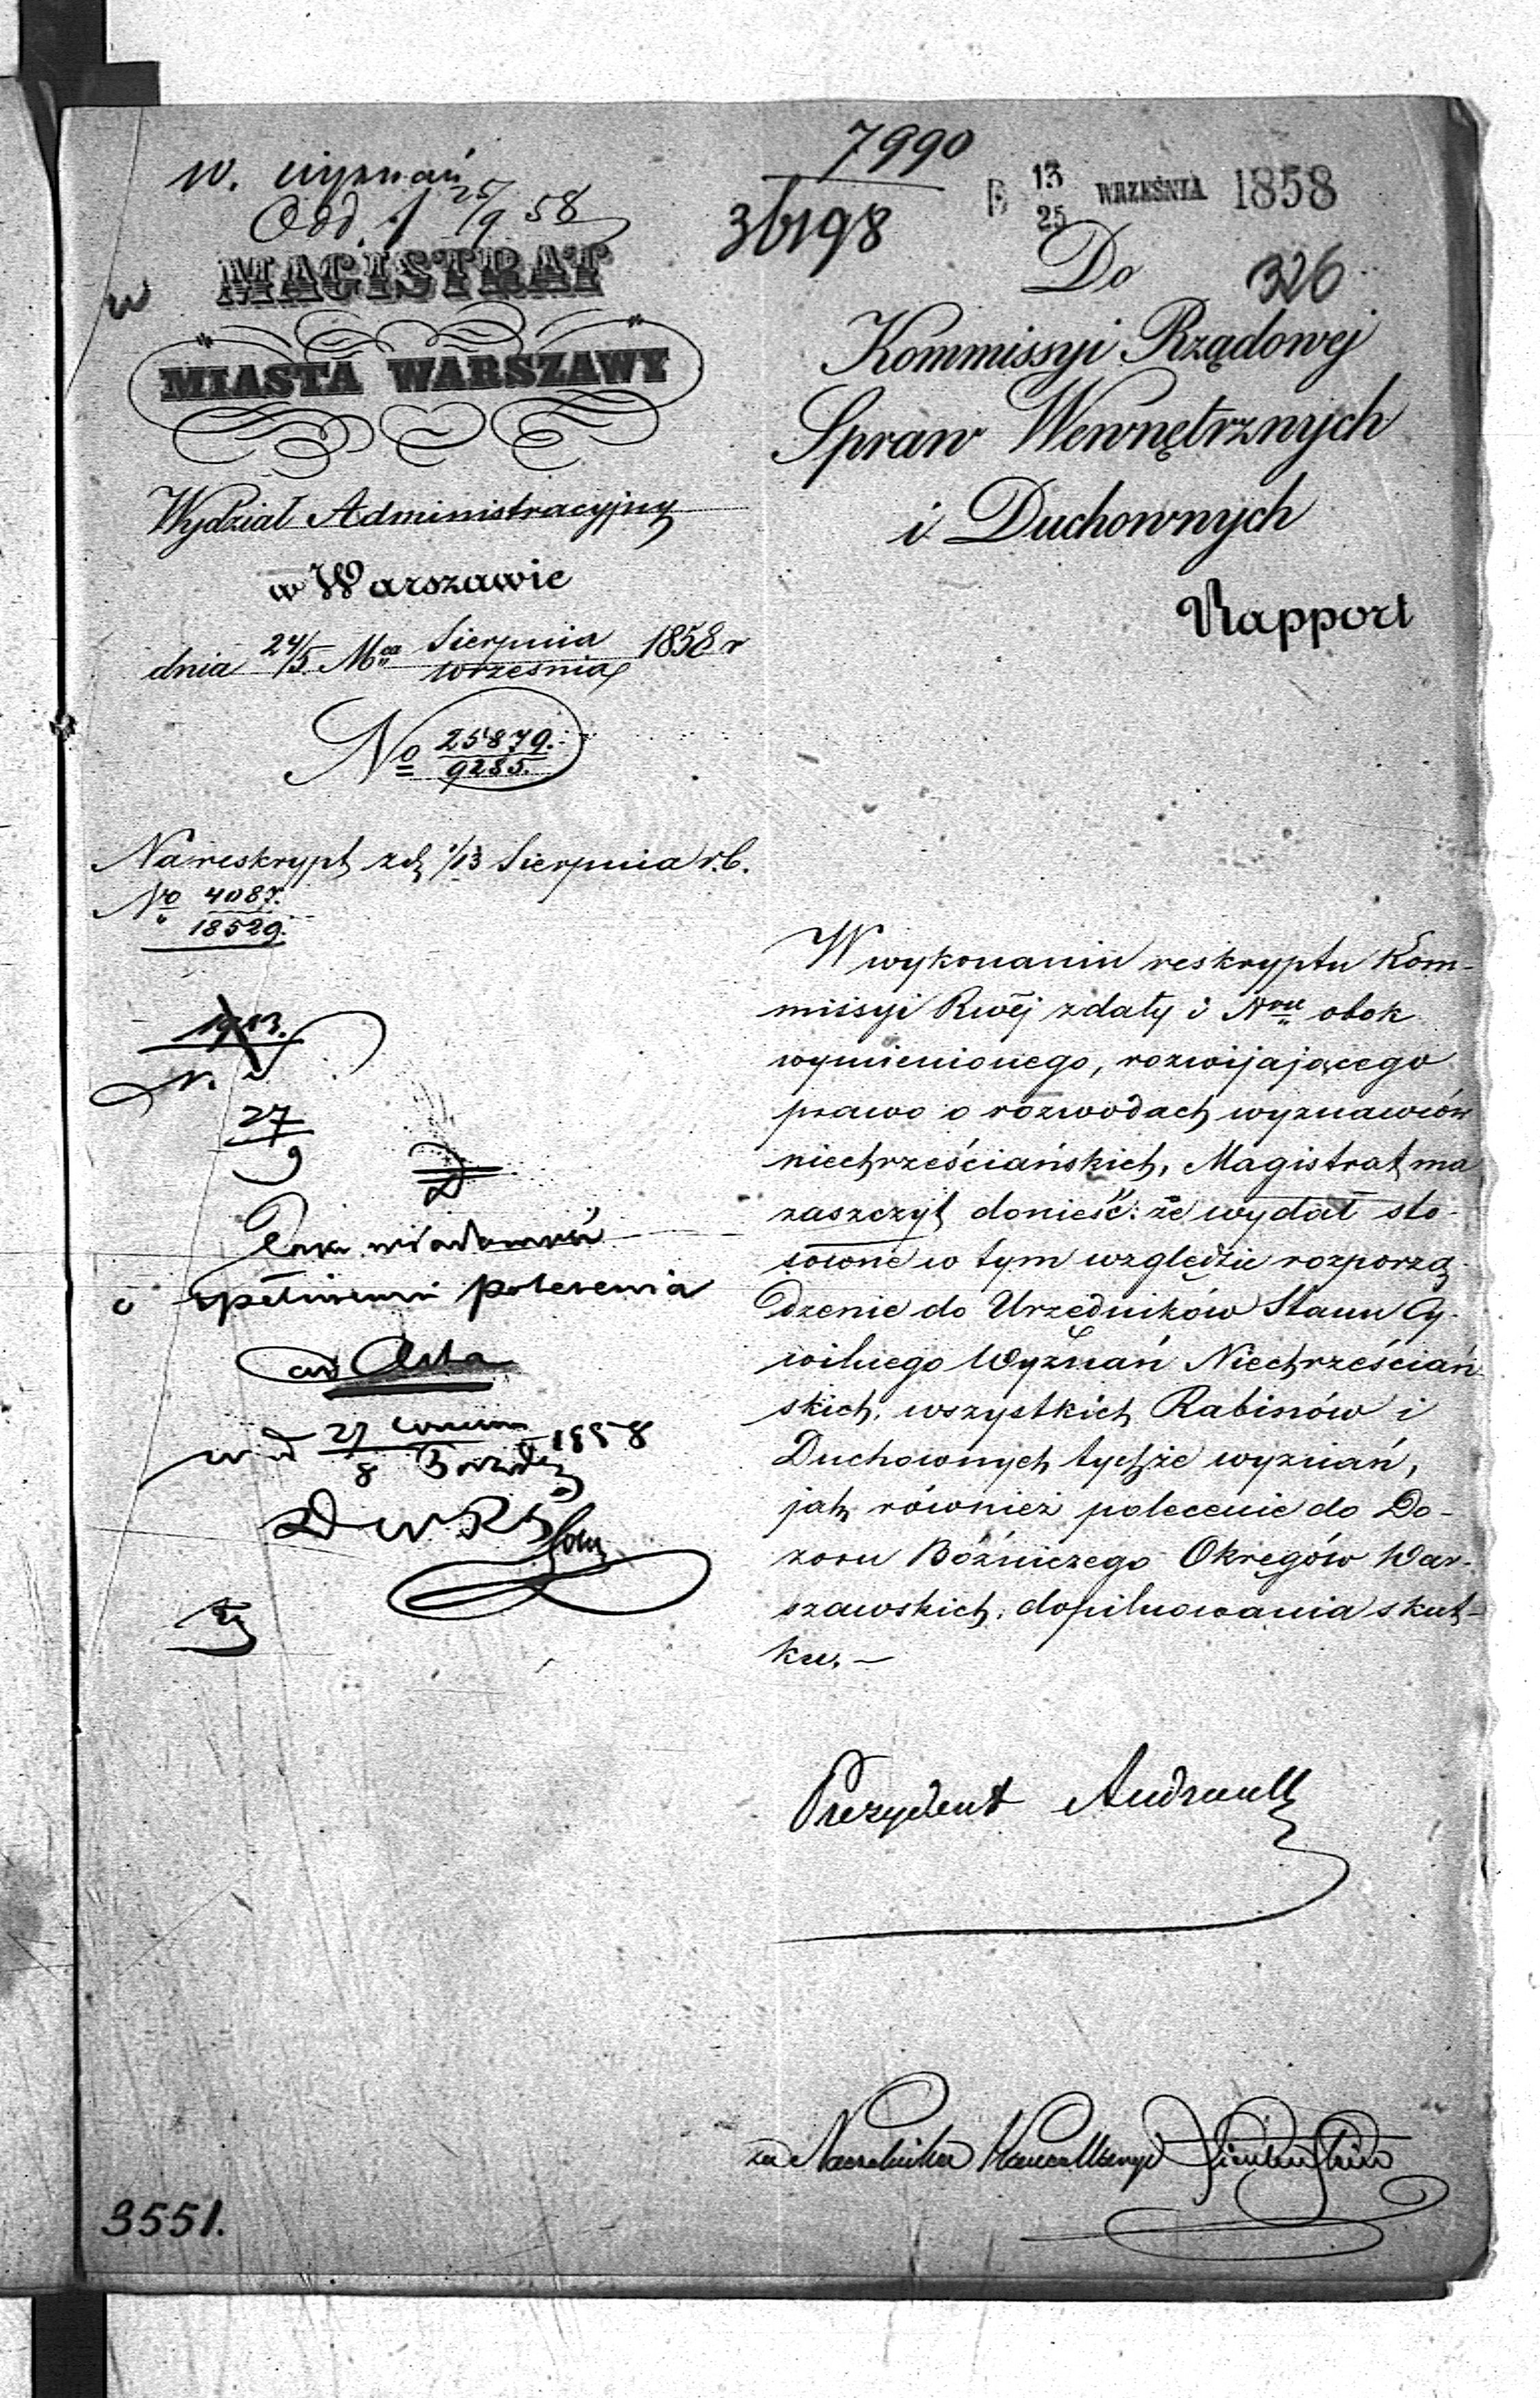 W. wyznań
Odd. 1 25/9 58
7990
36198
13
25 WRZEŚNIA 1858
326
MAGISTRAT
MIASTA WARSZAWY
Wydział Administracyjny
w Warszawie
dnia 24/5 Mca Sierpnia 1858 r
września
No 25879.
9285.
Na reskrypt z d. 1/13 Sierpnia r.b.
No 4087.
18529.
27
9
wiadomość
o spełnieniu polecenia
ad Acta
w d 27
8 1858
Do
Kommissyi Rządowej
Spraw Wewnętrznych
i Duchownych
Rapport
W wykonaniu reskryptu Kom-
missyi Rwéj z daty i Nru obok
wymienionego, rozwijającego
prawo o rozwodach wyznawców
niechrześciańskich, Magistrat ma
zaszczyt donieść: że wydał sto-
sowne w tym względzie rozporzą-
dzenie do Urzędników Stanu Cy-
wilnego Wyznań Niechrześciań-
skich, wszystkich Rabinów i
Duchownych tychże wyznań,
jak również polecenie do Do-
zoru Bóżniczego Okręgów War-
szawskich, dopilnowania skut-
ku. —
Prezydent Andrault
za Naczelnika Kancellaryi
3551.